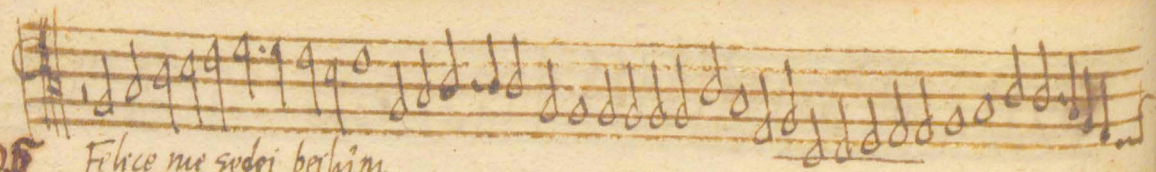 Felice me se dei bei lu'm